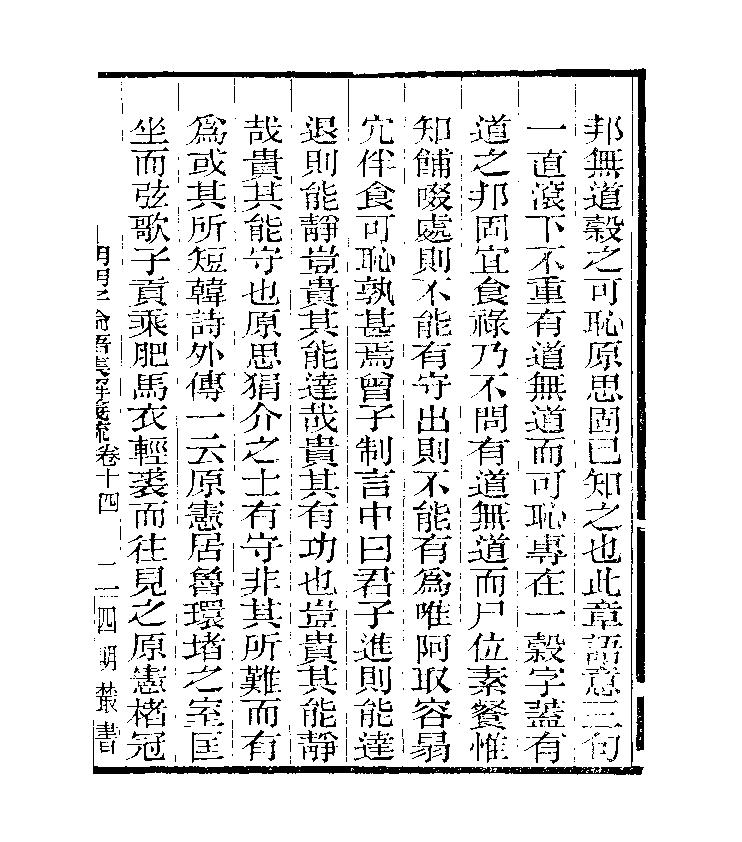 邦無道穀之可恥原思固已知之也此章語意三句
一直滾下不重有道無道而可恥專在一穀字蓋有
道之邦固宜食祿乃不問有道無道而尸位素餐惟
知餔啜處則不能有守出則不能有爲唯阿取容曷
宂伴食可恥孰甚焉曾子制言中曰君子進則能達
退則能靜豈貴其能達哉貴其有功也豈貴其能靜
哉貴其能守也原思狷介之士有守非其所難而有
爲或其所短韓詩外傳一云原憲居魯環堵之室匡
坐而弦歌子貢乘肥馬衣輕裘而往見之原憲楮冠
論語集解義疏卷十四 二 四明叢書